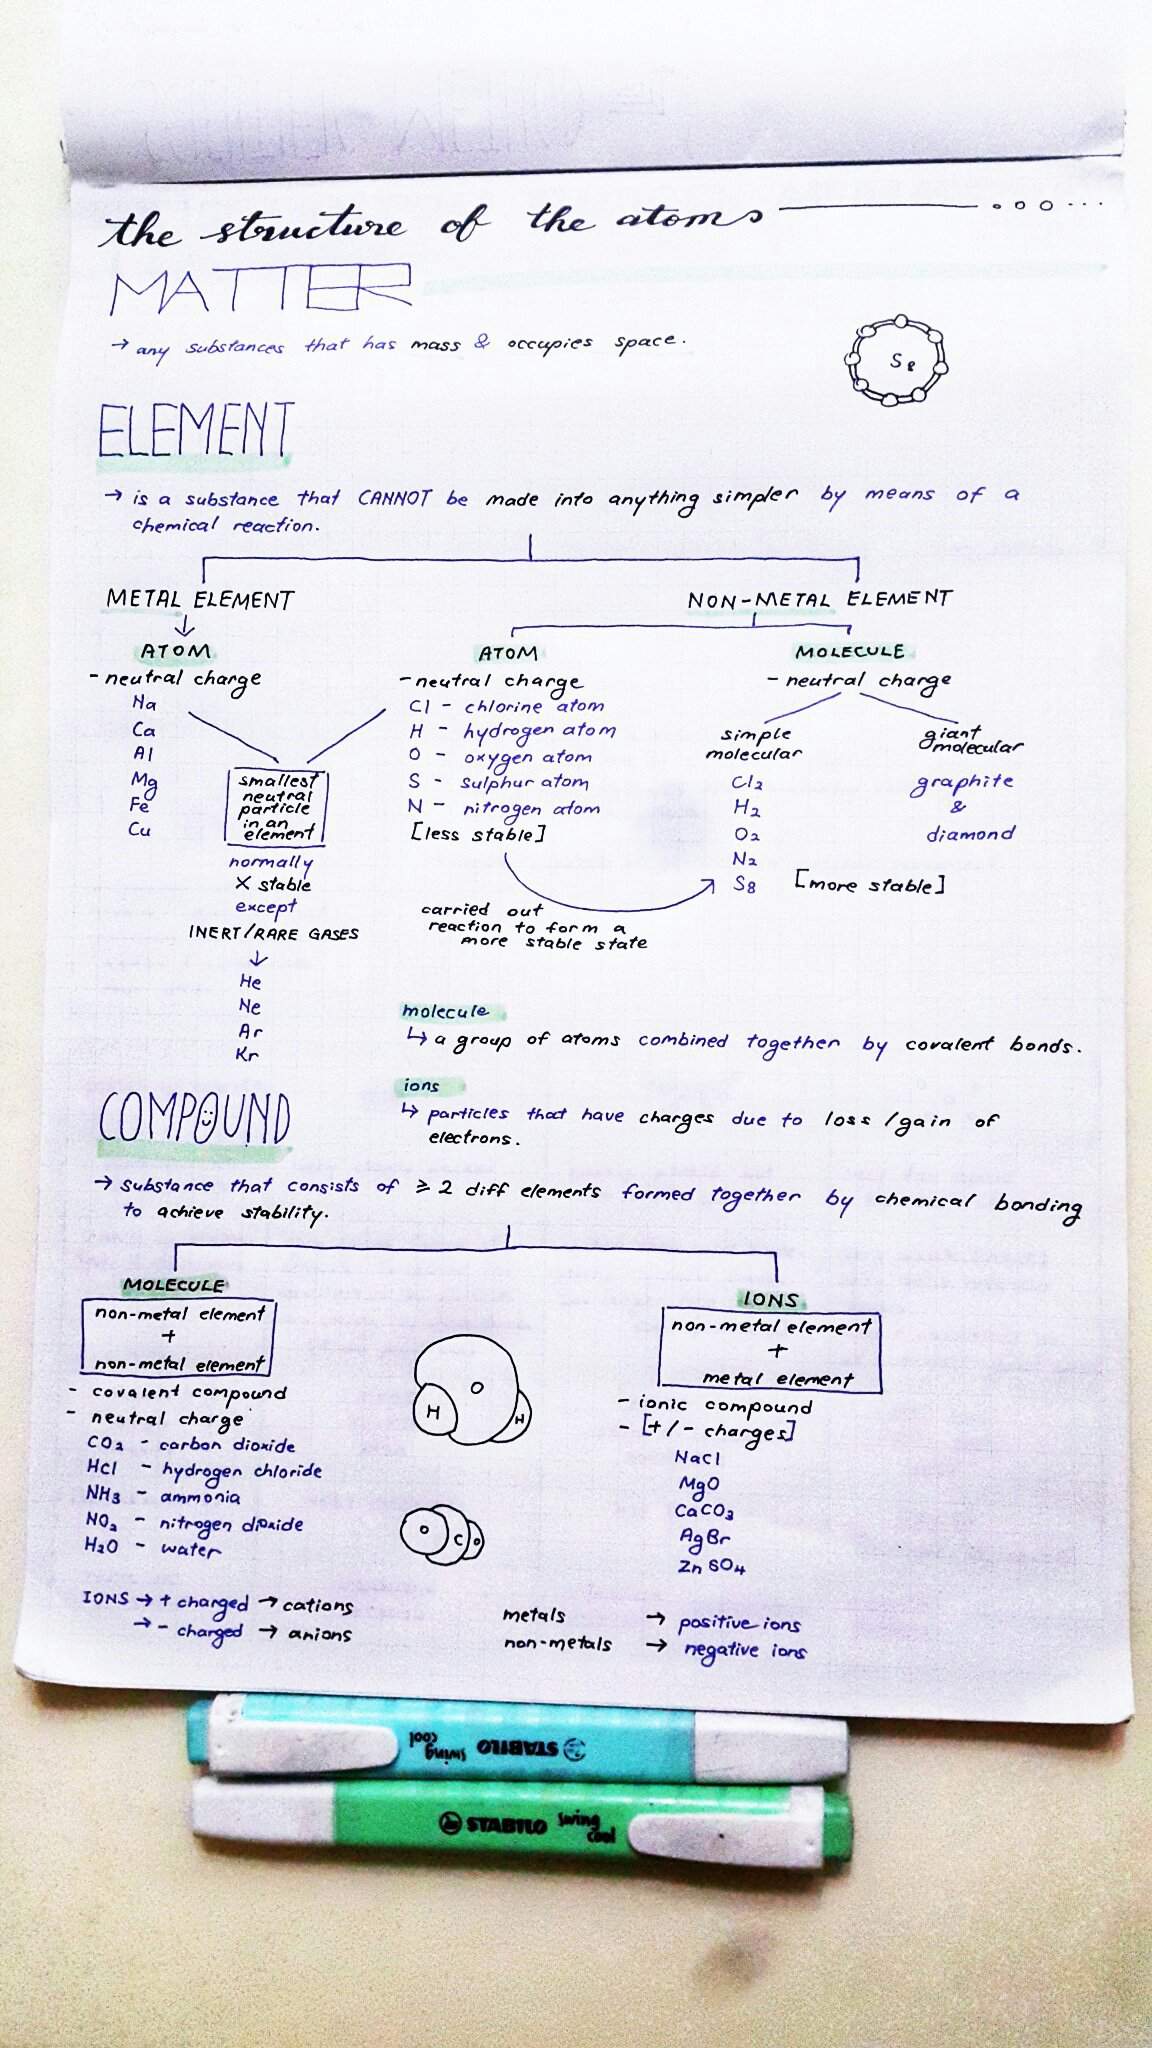 the structure of the atoms
MATTER
→ any substances that has mass & occupies space.
S8
ELEMENT
→ is a substance that CANNOT be made into anything simpler by means of a
chemical reaction.
METAL ELEMENT
NON-METAL ELEMENT
ATOM
- neutral charge
Na
Ca
Al
Mg
Fe
Cu
smallest
neutral
particle
in an
element
normally
X stable
except
INERT/RARE GASES
↓
He
Ne
Ar
Kr
ATOM
- neutral charge
Cl - chlorine atom
H - hydrogen atom
O - oxygen atom
S - sulphur atom
N - nitrogen atom
[less stable]
carried out
reaction to form a
more stable state
MOLECULE
- neutral charge
simple
molecular
Cl2
H2
O2
N2
S8 [more stable]
giant
molecular
graphite
&
diamond
molecule
↳ a group of atoms combined together by covalent bonds.
ions
↳ particles that have charges due to loss/gain of
electrons.
COMPOUND
→ substance that consists of ≥ 2 diff elements formed together by chemical bonding
to achieve stability.
MOLECULE
non-metal element
+
non-metal element
- covalent compound
- neutral charge
CO2 - carbon dioxide
HCl - hydrogen chloride
NH3 - ammonia
NO2 - nitrogen dioxide
H2O - water
O
H
H
O
C
O
IONS
non-metal element
+
metal element
- ionic compound
- [+/- charges]
NaCl
MgO
CaCO3
AgBr
ZnSO4
IONS → + charged → cations
→ - charged → anions
metals → positive ions
non-metals → negative ions
STABILO swing cool
STABILO swing cool